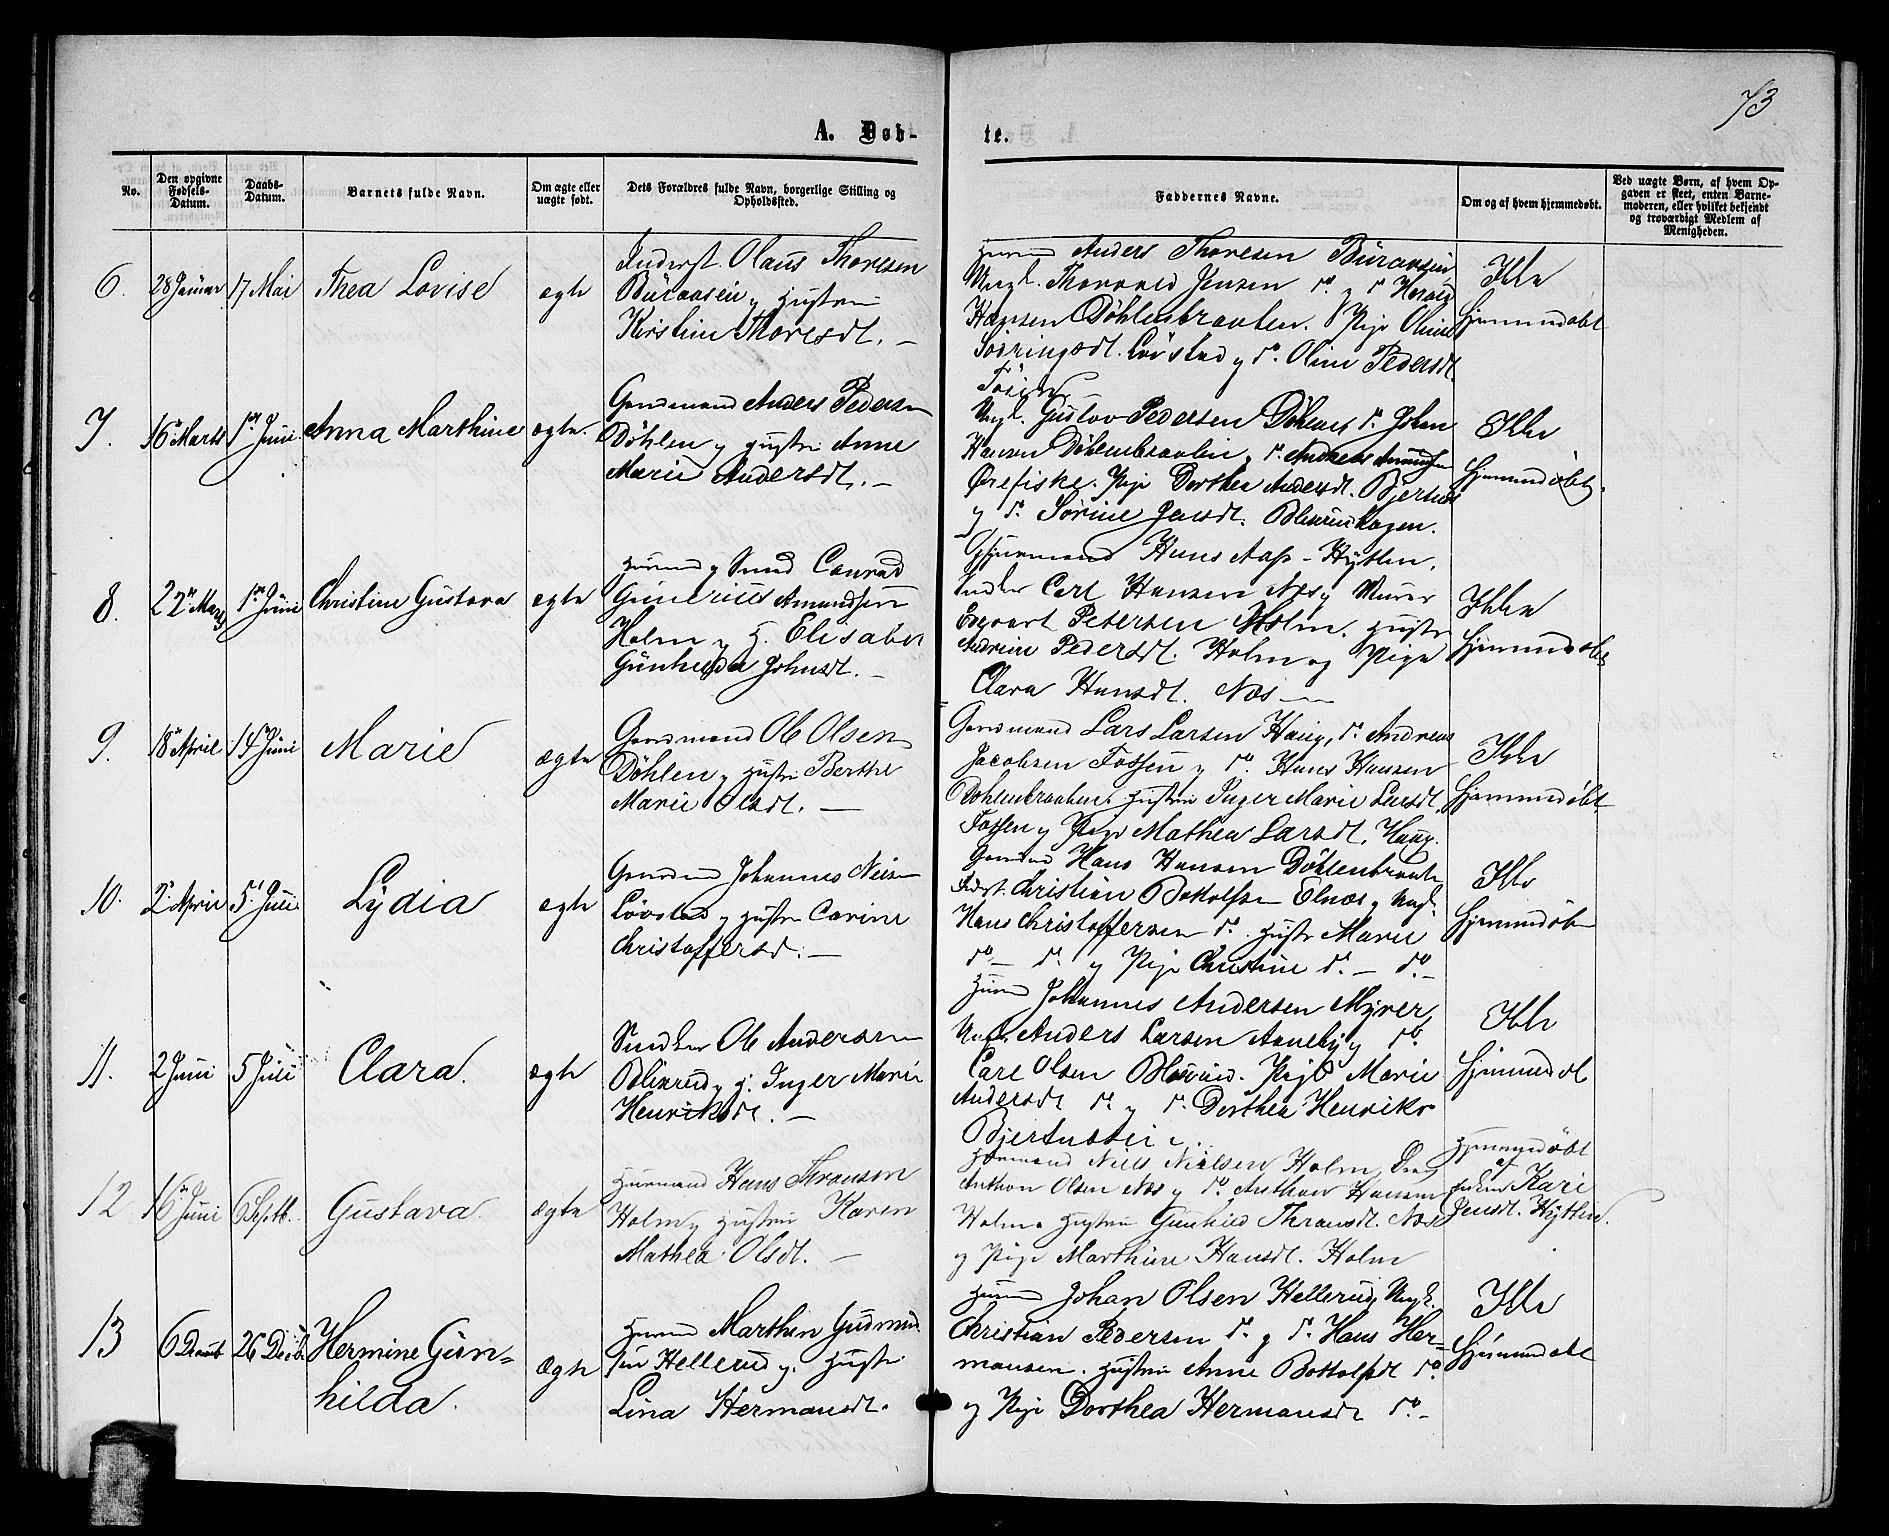 73
A. Døb-
te.
No.
Den opgivne Fødsels-Datum.
Daabs-Datum.
Barnets fulde Navn.
Om ægte eller uægte født.
Dets Forældres fulde Navn, borgerlige Stilling og Opholdssted.
Faddernes Navne.
Om og af hvem hjemmedøbt.
Ved uægte Børn, af hvem Opgaven er skeet, enten Barnemoderen, eller hvilket bekjendt og troværdigt Medlem af Menigheden.
6. 28 Januar 17 Mai Thea Lovise ægte
Inderst. Olaus Thoresen
Buraasen og Hustru
Kirstine Thoresdt. —
Anders Thoresen Buraasen
Ungk. Thorvald Jensen do. og do
Hansen Døhlenbraaten. Pige Oline
Løvstad og do. Oline Pedersdt.
Ikke
hjemmedøbt
7. 16 Marts 1ste Juni Anna Marthine ægte.
Gaardmand Anders Pedersen
Døhlen og Hustru Anne
Marie Andersdt. —
Ungk. Gustav Pedersen Døhlen, do. Johan
Hansen Døhlenbraaten, do. Andreas Amundsen
Ørefiske. Pige Dorthea Andersdt.
og do. Sørine Jensdt. Blixrudhagen.
Ikke
hjemmedøbt.
8. 22 Marts 1ste Juni Christine Gustava ægte
Huusmand og Smed Conrad
Gunerius Amundsen
Holm og H. Elisabet
Gunhilda Johnsdt. —
Hans Aas - Hytten,
Carl Hansen Næs, Murer
Edvart Petersen Holm. Hustru
Andrine Pedersdt. Holm og Pige
Clara Hansdt. Næs —
Ikke
hjemmedøbt
9. 18 April 14 Juni Marie ægte
Gaardmand Ole Olsen
Døhlen og Hustru Berthe
Marie Olsdt. —
Gaardmand Lars Larsen Haug, do. Andreas
Jacobsen Fossen og do. Hans Hansen
Døhlenbraaten. Hustru Inger Marie Larsdt.
Fossen og Pige Mathea Larsdt. Haug.
Ikke
hjemmedøbt
10. 2 April 5 Juli Lydia ægte
Gaardmand Johannes
Løvstad og Hustru Carine
Christoffersd. —
Hans Hansen Døhlenbraaten
Inderst. Christian Bottolfsen Elnæs og Ungk.
Hans Christoffersen do. Hustru Marie
do — do. og Pige Christine do. — do. —
Ikke
hjemmedøbt
11. 2 Juni 5 Juli Clara. ægte
Snedker Ole Andersen
Blixrud og H. Inger Marie
Henriksdt. —
Johannes Andersen Myrer,
Ungk. Anders Larsen Aaneby og do
Carl Olsen Blixrud. Pige Marie
Andersdt do. og do. Dorthea Henriks
Ikke
hjemmedøbt
12 16 Juni 6 Septb. Gustava ægte
Huusmand Hans Thronsen
Holm og Hustru Karen
Mathea Olsdt. —
Huusmand Niels Nielsen Holm, Dreng
Anthon Olsen Næs og do Anthon Hansen
Holm. Hustru Gunhild Thronsdt. Næs
og Pige Marthine Hansdt. Holm
hjemmedøbt
af
Kari
Jensdt. Hytten.
13 6 Decemb 26 Decb Hermine Gun=
hilda. ægte
Huusmand Marthin Gudmund-
sen Hellerud og Hustru
Lina Hermansdt.
Johan Olsen Hellerud, Ungk.
Christian Pedersen do. og do. Hans Her-
mansen. Hustru Anne Bottolfsdt do
og Pige Dorthea Hermansdt do. —
Ikke
hjemmedøbt